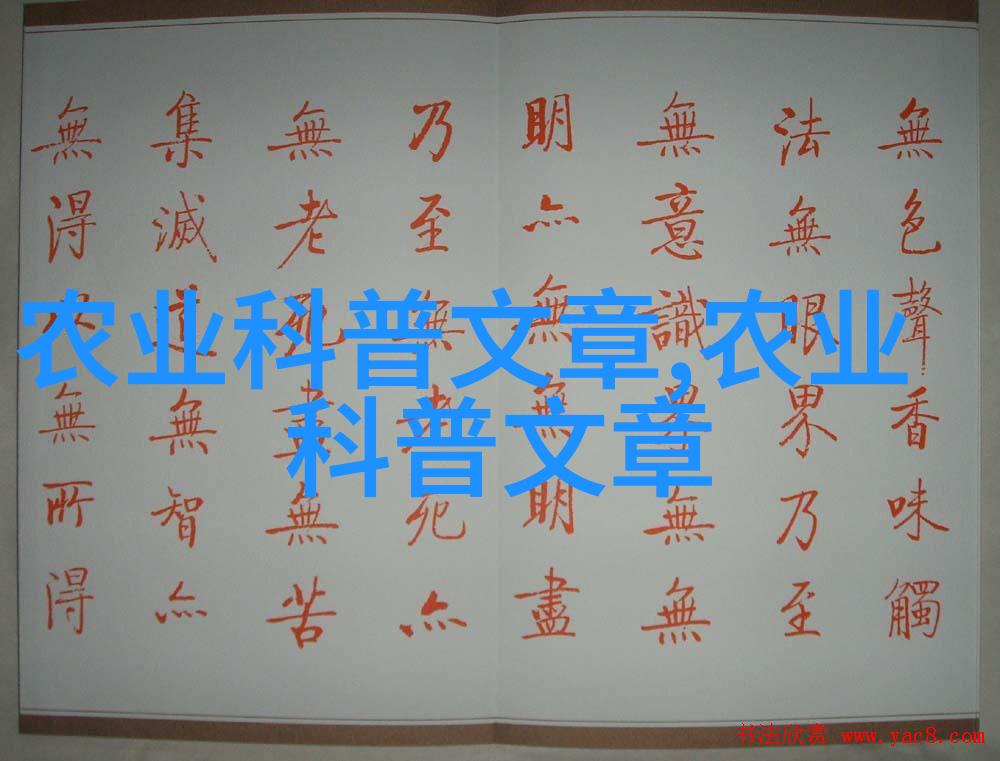 無色聲香味觸
法無眼界乃至
無意識界無無
明亦無無明盡
乃至無老死亦
無老死盡無苦
集滅道無智亦
無得以無所得
农业科普文章,农业
科普文章
书法欣赏 www.yac8.com